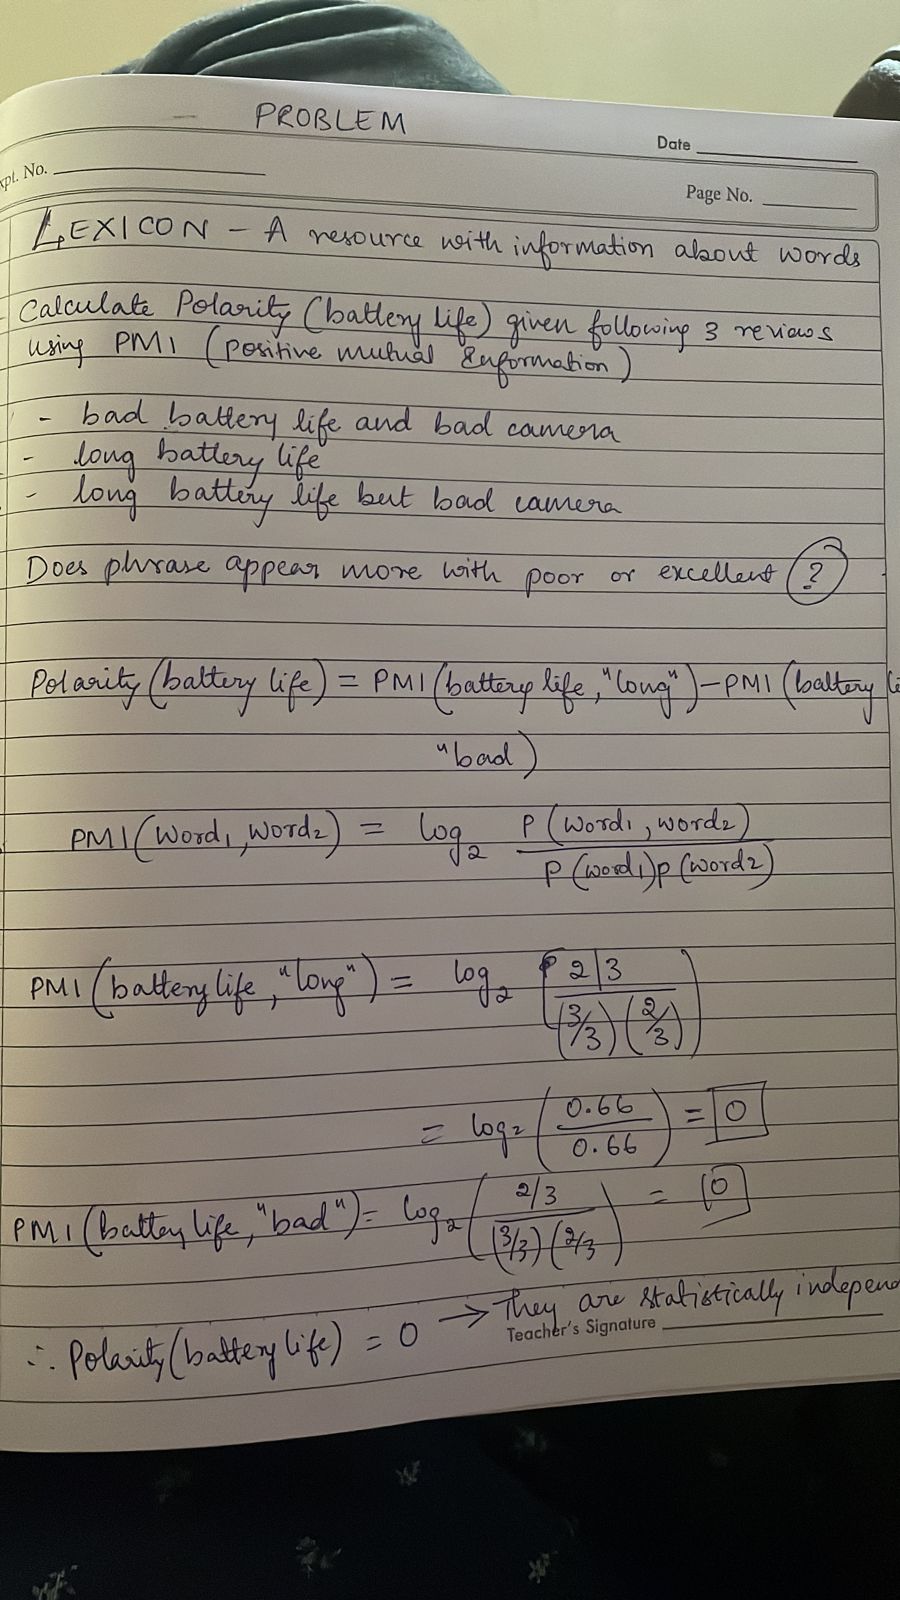 PROBLEM
Date
xpt. No.
Page No.
LEXICON - A resource with information about words
Calculate Polarity (battery life) given following 3 reviews
using PMI (positive mutual Information)
- bad battery life and bad camera
- long battery life
- long battery life but bad camera
Does phrase appear more with poor or excellent ?
Polarity (battery life) = PMI (battery life, "long") - PMI (battery li
"bad)
PMI (word1, word2) = log2 P (word1, word2) / P (word1) p (word2)
PMI (battery life, "long") = log2 ( 2/3 / (3/3) (2/3) )
= log2 ( 0.66 / 0.66 ) = 0
PMI (battey life, "bad") = log2 ( 2/3 / (3/3) (2/3) ) = 0
∴ Polarity (battery life) = 0 → They are statistically independ
Teacher's Signature